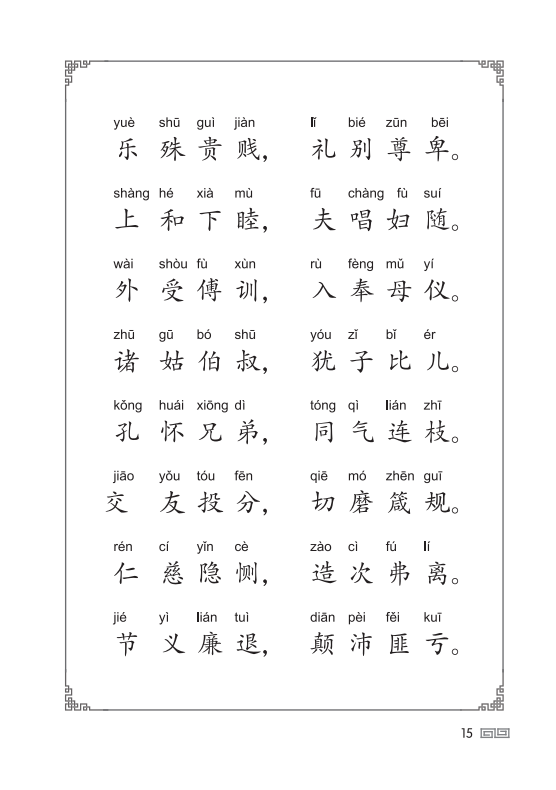 yuè shū guì jiàn lǐ bié zūn bēi
乐殊贵贱，礼别尊卑。
shàng hé xià mù fū chàng fù suí
上和下睦，夫唱妇随。
wài shòu fù xùn rù fèng mǔ yí
外受傅训，入奉母仪。
zhū gū bó shū yóu zǐ bǐ ér
诸姑伯叔，犹子比儿。
kǒng huái xiōng dì tóng qì lián zhī
孔怀兄弟，同气连枝。
jiāo yǒu tóu fēn qiē mó zhēn guī
交友投分，切磨箴规。
rén cí yǐn cè zào cì fú lí
仁慈隐恻，造次弗离。
jié yì lián tuì diān pèi fěi kuī
节义廉退，颠沛匪亏。
15